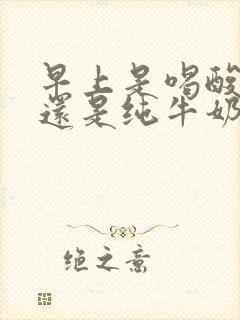 早上是喝酸
還是纯牛奶
绝之意